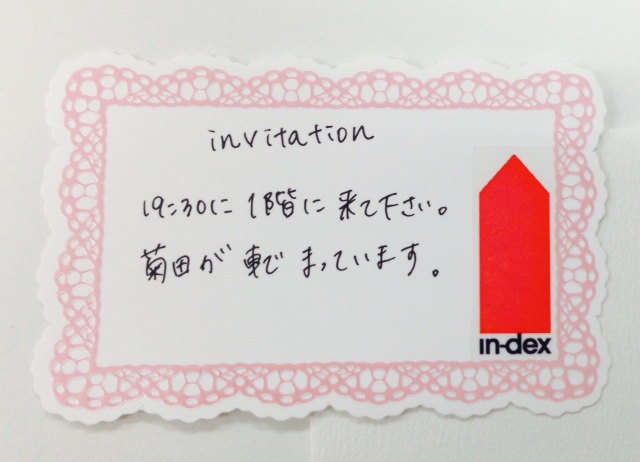 invitation
19:30に 1階に 来て下さい。
菊田が 車で まっています。
in-dex